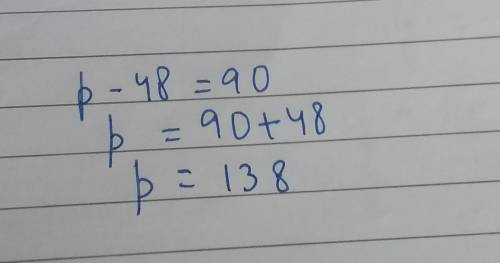 p - 48 = 90
p = 90 + 48
p = 138